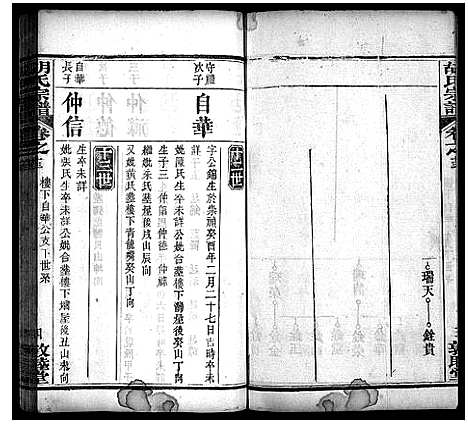 胡氏宗譜
卷之
瑞天
銓貴
敦睦堂
十二世
守
次子
自華
字公錦生於崇禎癸酉年二月二十七日吉時卒未
詳
姚陳氏生卒未詳公姚合葬樓下屋後癸山丁向
生子三 仲信 仲德 仲祿
繼姚余氏葬屋後戌山辰向
又姚黃氏葬樓下青龍嘴癸山丁向
十三世
自華
長子
仲信
生卒未詳
姚張氏生卒未詳公姚合葬樓下塝屋後丑山未向
胡氏宗譜
卷之
樓下自華公支下世系
四
敦睦堂